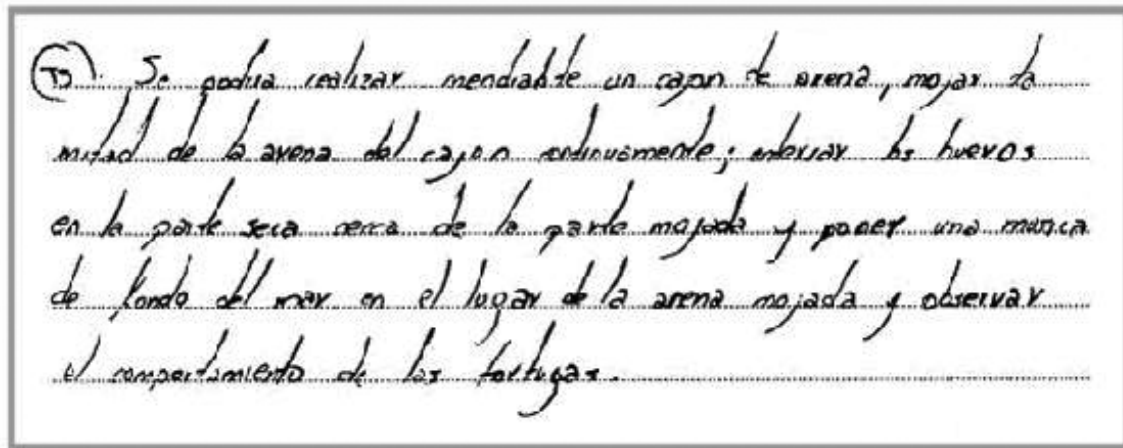 Se podria realizar mendiabte un cajon de arena, mojar la
mitad de la arena del cajon continuamente; enterrar los huevos
en la parte seca cerca de la parte mojada y poner una musica
de fondo del mar en el lugar de la arena mojada y observar
el comportamiento de las tortugas.